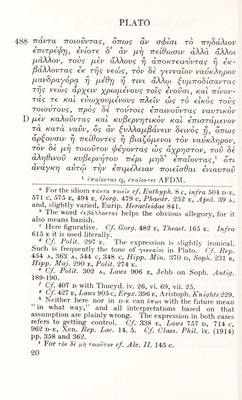 PLATO
488 πάντα ποιοῦντας, ὅπως ἄν σφίσι τὸ πηδάλιον
ἐπιτρέψῃ, ἐνίοτε δ' ἂν μὴ πείθωσιν ἀλλὰ ἄλλοι
μᾶλλον, τοὺς μὲν ἄλλους ἢ ἀποκτεινύντας ἢ ἐκ-
βάλλοντας ἐκ τῆς νεώς, τὸν δὲ γενναῖον ναύκληρον
μανδραγόρᾳ ἢ μέθῃ ἤ τινι ἄλλῳ ξυμποδίσαντας
τῆς νεὼς ἄρχειν χρωμένους τοῖς ἐνοῦσι, καὶ πίνον-
τάς τε καὶ εὐωχουμένους πλεῖν ὡς τὸ εἰκὸς τοὺς
τοιούτους, πρὸς δὲ τούτοις ἐπαινοῦντας ναυτικὸν
D μὲν καλοῦντας καὶ κυβερνητικὸν καὶ ἐπιστάμενον
τὰ κατὰ ναῦν, ὃς ἂν ξυλλαμβάνειν δεινὸς ᾖ, ὅπως
ἄρξουσιν ἢ πείθοντες ἢ βιαζόμενοι τὸν ναύκληρον,
τὸν δὲ μὴ τοιοῦτον ψέγοντας ὡς ἄχρηστον, τοῦ δὲ
ἀληθινοῦ κυβερνήτου πέρι μηδ' ἐπαΐοντας, ὅτι
ἀνάγκη αὐτῷ τὴν ἐπιμέλειαν ποιεῖσθαι ἐνιαυτοῦ
¹ ἐπαΐοντας q, ἐπαΐοντες AFDM.
ᵃ For the idiom πάντα ποιεῖν cf. Euthyph. 8 c, infra 504 D-E,
571 c, 575 E, 494 E, Gorg. 479 c, Phaedr. 252 E, Apol. 39 A,
and, slightly varied, Eurip. Heracleidae 841.
ᵇ The word ἐκβάλλοντας helps the obvious allegory, for it
also means banish.
ᶜ Here figurative. Cf. Gorg. 482 E, Theaet. 165 E. Infra
615 E it is used literally.
ᵈ Cf. Polit. 297 E. The expression is slightly ironical.
Such is frequently the tone of γενναῖος in Plato. Cf. Rep.
454 A, 363 A, 544 c, 348 c, Hipp. Min. 370 D, Soph. 231 B,
Hipp. Maj. 290 E, Polit. 274 E.
ᵉ Cf. Polit. 302 A, Laws 906 E, Jebb on Soph. Antig.
189-190.
ᶠ Cf. 407 D with Thucyd. iv. 26, vi. 69, vii. 25.
ᵍ Cf. 427 E, Laws 905 c, Eryx. 396 E, Aristoph. Knights 229.
ʰ Neither here nor in D-E can ὅπως with the future mean
"in what way," and all interpretations based on that
assumption are plainly wrong. The expression in both cases
refers to getting control. Cf. 338 E, Laws 757 D, 714 c,
962 D-E, Xen. Rep. Lac. 14. 5. Cf. Class. Phil. ix. (1914)
pp. 358 and 362.
ⁱ For τὸν δὲ μὴ τοιοῦτον cf. Alc. II. 145 c.
20